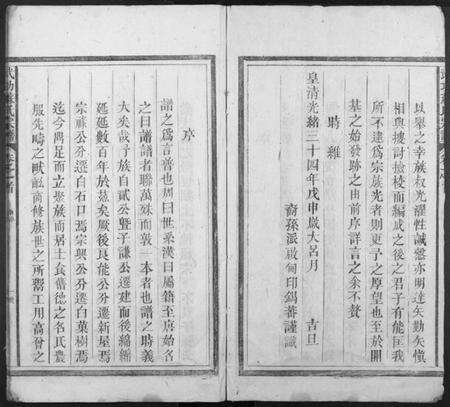 以舉之幸族叔光耀性誠慤亦明達矣勤矣愼
相與搜討撿校而編成之後之君子有能匡我
所不逮爲宗族光者則更予之厚望也至於開
基之始發跡之由前序詳言之余不贅
時維
皇清光緒三十四年戊申歲大呂月 吉旦
裔孫派啟甸印錫蕃謹識
序
譜之爲言普也周曰世系漢曰屬籍至唐始名
之曰譜譜者聯萬殊而敦一本者也譜之時義
大矣哉予族自貳公暨子謙公遷建而後綿綿
延延數百年於茲矣厥後良能公分遷新屋焉
宗禄公分遷白石口焉宗興公分遷白菓樹焉
迄今閧足而立聚族而居士食舊德之名氏農
服先疇之畎畝商修族世之所鬻工用高曾之